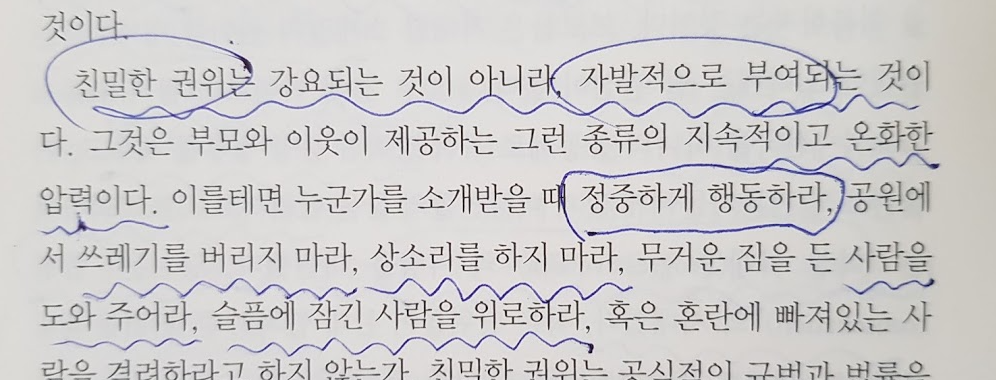 것이다.
친밀한 권위는 강요되는 것이 아니라, 자발적으로 부여되는 것이
다. 그것은 부모와 이웃이 제공하는 그런 종류의 지속적이고 온화한
압력이다. 이를테면 누군가를 소개받을 때 정중하게 행동하라, 공원에
서 쓰레기를 버리지 마라, 상소리를 하지 마라, 무거운 짐을 든 사람을
도와 주어라, 슬픔에 잠긴 사람을 위로하라, 혹은 혼란에 빠져있는 사
람을 격려하라고 하지 않는가. 친밀한 권위는 공식적인 규범과 법률을